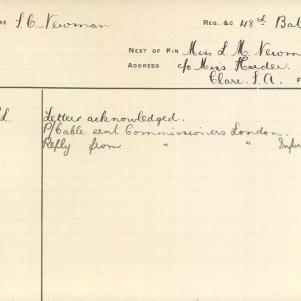 S. C. Newman REG. &C 48th Bat
NEXT OF KIN Miss L M Newm
ADDRESS c/o Miss Harder
Clare. S.A. F
L. Letter acknowledged.
P/Cable sent Commissioners London.
Reply from " " Infor